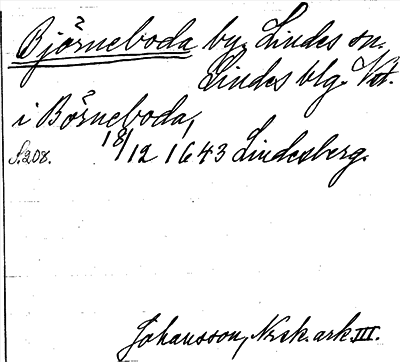 Björneboda by. Lindes sn.
Lindes blg. Vstm.
i Börneboda,
s. 208. 18/12 1643 Lindesberg.
Johansson, Norsk. ark. III.